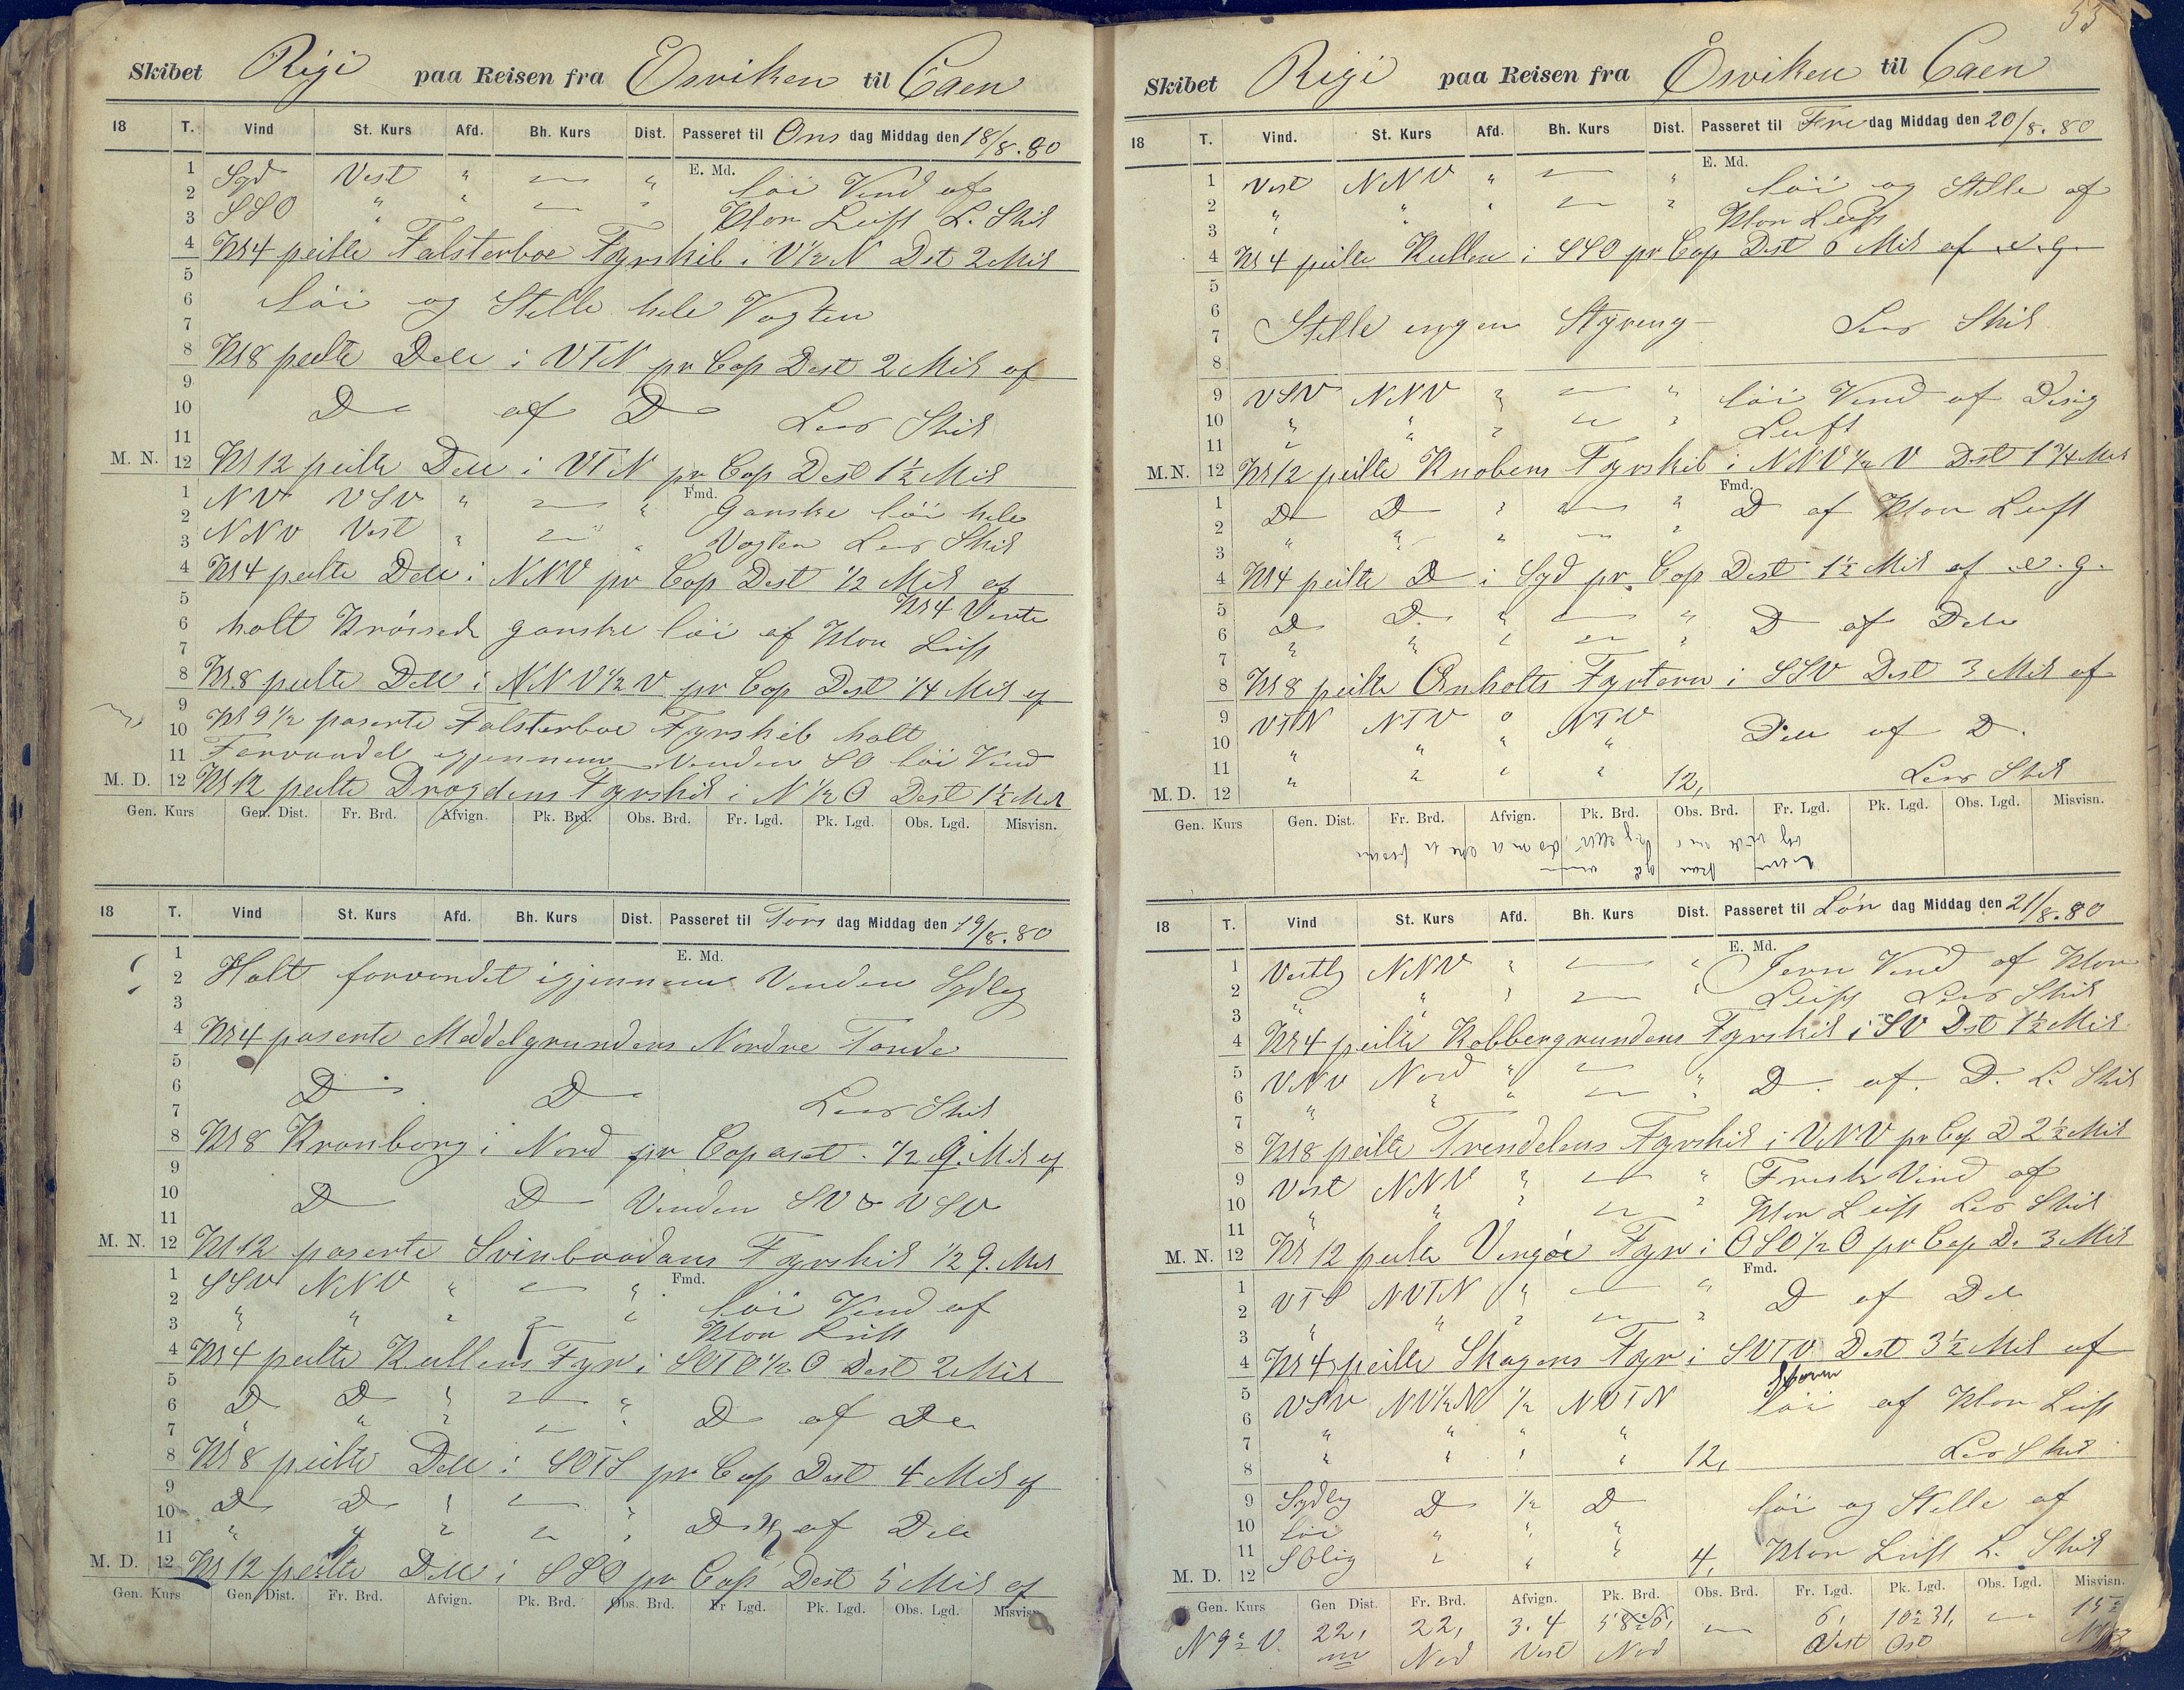 Skibet Rigi paa Reisen fra Ősviken til Caen
18 T. Vind St. Kurs Afd. Bh. Kurs Dist. Passeret til Ons dag Middag den 18/8.80
E. Md.
1 Syd Vest " — " löi Vind af
2 SSO " " — " Klar Luft L. Skib
3
4 Kl 4 peilte Falsterboe Fyrskib i V½N Dst 2 Mil
5
6 löi og Stille hele Vagten
7
8 Kl 8 peilte Dele i VTN pr Cop Dest 2 Mil af
9
10 D— af D— Lens Skib
11
M. N. 12 Kl 12 peilte Dele i VTN pr Cop Dest 1½ Mil
Fmd.
1 NV VSV " — " Ganske löi hele
2 NNV Vest " — " Vagten Lens Skib
3
4 Kl 4 peilte Dele i NNV pr Cop Dest ½ Mil af
5 Kl 4 Vente
6 holt Krössede ganske löi af Klar Luft
7
8 Kl 8 peilte Dele i NNV½V pr Cop Dest ¼ Mil af
9
10 Kl 9½ paserte Falsterboe Fyrskib halt
11 Farvandet igjennem Vinden SO löi Vind
M. D. 12 Kl 12 peilte Drogdens Fyrskib i N½O Dest 1½ Mil
Gen. Kurs Gen. Dist. Fr. Brd. Afvign. Pk. Brd. Obs. Brd. Fr. Lgd. Pk. Lgd. Obs. Lgd. Misvisn.
18 T. Vind St. Kurs Afd. Bh. Kurs Dist. Passeret til Tors dag Middag den 19/8.80
E. Md.
1
2 Halt farvandet igjennem Vinden Sydlig
3
4 Kl 4 paserte Meddelgrundens Nordre Tonde
5
6 D— D— Lens Skib
7
8 Kl 8 Kronborg i Nord pr Cop ½ g. Mil af
9
10 D— D— Vinden SV & VSV
11
M. N. 12 Kl 12 paserte Svinbaadans Fyrskib ½ g. Mil
Fmd.
1 SSV NNV " — " löi Vind af
2 " " " — " Klar Luft
3
4 Kl 4 peilte Kullens Fyr i SOTO½O Dest 2 Mil
5
6 D D " — " D af De
7 " " " — "
8 Kl 8 peilte Dele i SOTS pr Cop Dest 4 Mil af
9
10 D D " — " D af Dele
11 " " " — "
M. D. 12 Kl 12 peilte Dele i SSO pr Cop Dest 5 Mil af
Gen. Kurs Gen. Dist. Fr. Brd. Afvign. Pk. Brd. Obs. Brd. Fr. Lgd. Pk. Lgd. Obs. Lgd. Misvisn.
53
Skibet Rigi paa Reisen fra Ősviken til Caen
18 T. Vind. St. Kurs Afd. Bh. Kurs Dist. Passeret til Fre dag Middag den 20/8.80
E. Md.
1 Vest NNV " — " löi og Stille af
2 " " " — " Klar Luft
3
4 Kl 4 peilte Kullen i SSO pr Cop Dest 6 Mil af e. g.
5
6
7 Stille ingen Styreng — Lens Skib
8
9 VSV NNV " — " löi Vind af Disig
10 " " " — " Luft
11
M.N. 12 Kl 12 peilte Knobens Fyrskib i NNV½V Dst 1¾ Mil
Fmd.
1 D D " — " D af Klar Luft
2 " " " — "
3
4 Kl 4 peilte D i Syd pr Cop Dest 1½ Mil af e. g.
5 D D. " — " D af Dele
6 " " " — "
7
8 Kl 8 peilte Anholts Fyrtaarn i SSV Dest 3 Mil af
9 VTN NTV 0 NTV Dele af D.
10 " " " "
11 " " " " 12, Lens Skib
M. D. 12
Gen. Kurs Gen. Dist. Fr. Brd. Afvign. Pk. Brd. Obs. Brd. Fr. Lgd. Pk. Lgd. Obs. Lgd. Misvisn.
18 T. Vind St. Kurs Afd. Bh. Kurs Dist. Passeret til Lön dag Middag den 21/8.80
E. Md.
1 Vestlg NNV " — " Jevn Vind af Klar
2 " " " — " Luft Lens Skib
3
4 Kl 4 peilte Kobbergrundens Fyrskib i SV Dst 1½ Mil
5 VNV Nord " — " D. af. D. L. Skib
6 " " " — "
7
8 Kl 8 peilte Trendelens Fyrskib i VNV pr Cop D 2½ Mil
9 Vest NNV " — " Frisk Vind af
10 " " " — " Klar Luft Lens Skib
11
M. N. 12 Kl 12 peilte Vingöe Fyr i OSO½O pr Cop D. 3 Mil
Fmd.
1 VTS NVTN " — " D af Dele
2 " " " — "
3
4 Kl 4 peilte Skagens Fyr i SVTV Dest 3½ Mil af
5 VSV NV½N ½ NVTN löi af Klar Luft
6 " " " "
7 " " " " 12, Lens Skib
8
9 Sydlg D ½ D löi og Stille af
10 löi " " "
11 SOlig " " " 4, Klar Luft L. Skib
M. D. 12
Gen. Kurs Gen Dist. Fr. Brd. Afvign. Pk. Brd. Obs. Brd. Fr. Lgd. Pk. Lgd. Obs. Lgd. Misvisn.
N 9°½ V. 22, m 22, Nord 3.4 Vest Nord — 6, Vest 10°31, Ost —